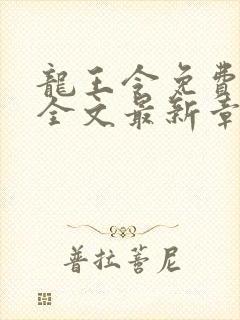 龍王令免費
全文最新章
普拉蓍尼